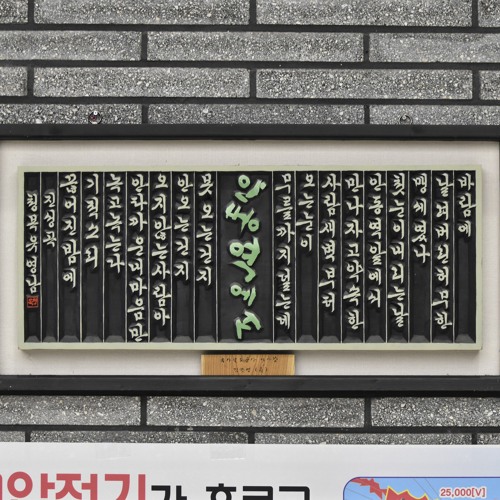 바람에
날려버린허무한
맹세였나
첫눈이내리는날
안동역앞에서
만나자고약속한
사람새벽부터
오는눈이
무릎까지덮는데
안동역에서
못오는건지
안오는건지
오지않는사람아
안타까운내마음만
녹고녹는다
기적소리
끊어진밤에
진성곡
압전기가 흐르고
25,000[V]